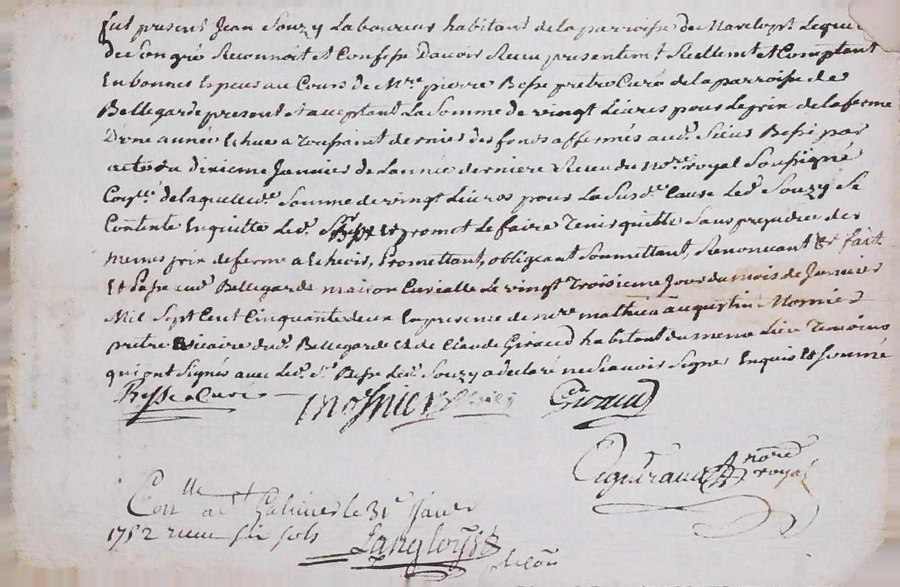 fut present Jean Souzy Laboureur habitant de la parroisse de Lequel
de son gré Reconnoit et Confesse Davoir Recu presentement Réellement et Comptant
En bonnes Especes au Cours de Mre pierre Besse pretre Curé de la parroisse de
Bellegarde present et acceptant La Somme de vingt Livres pour Le prix de la ferme
D'une année Echue a Toussaint dernier des fonds affermés aud. Sieur Besse par
acte du dixieme Janvier de Lannée derniere Receu du nore royal Soussigné
de laquelle de. Somme de vingt Livres pour La Susde. Cause Led. Souzy Se
Contente En quitte Led. Sr Besse Et promet Le faire Tenir quitte Sans prejudice des
memes prix de ferme a Echeoir, Promettant, obligeant Soumettant, Renoncant & fait
Et Passé aud. Bellegarde maison Curialle Le vingt Troisieme Jour du mois de Janvier
Mil Sept Cent Cinquante deux En presence de mre mathieu augustin Mornier
pretre vicaire dud. Bellegarde Et de Claude Giraud habitant du meme Lieu Temoins
qui ont Signés avec Led. Sr. Besse Led. Souzy a declaré ne Scavoir Signer Enquis Et Sommé
Besse Curé
Giraud
nore
royal
Conllé a St Galmier le 31e Janvr
1752 recu six sols
Langloys